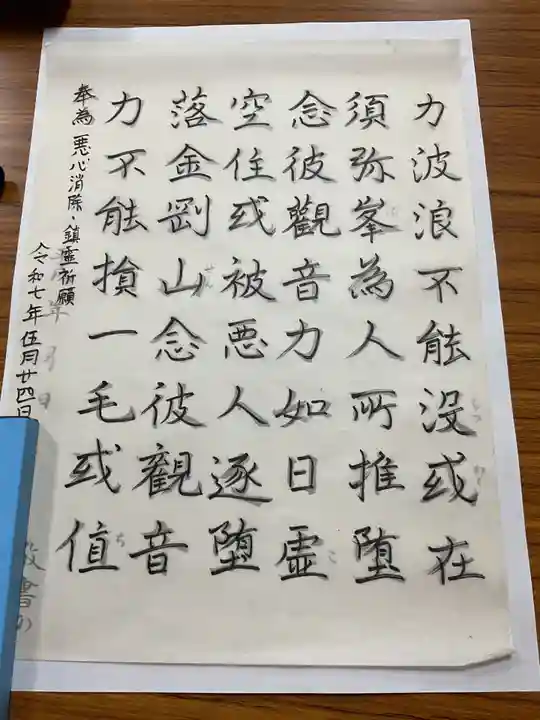 力波浪不能没或在
須弥峯為人所推堕
念彼觀音力如日虚
空住或被悪人逐堕
落金剛山念彼觀音
力不能損一毛或値
奉為 悪心消除・鎮霊祈願
令和七年伍月廿四日